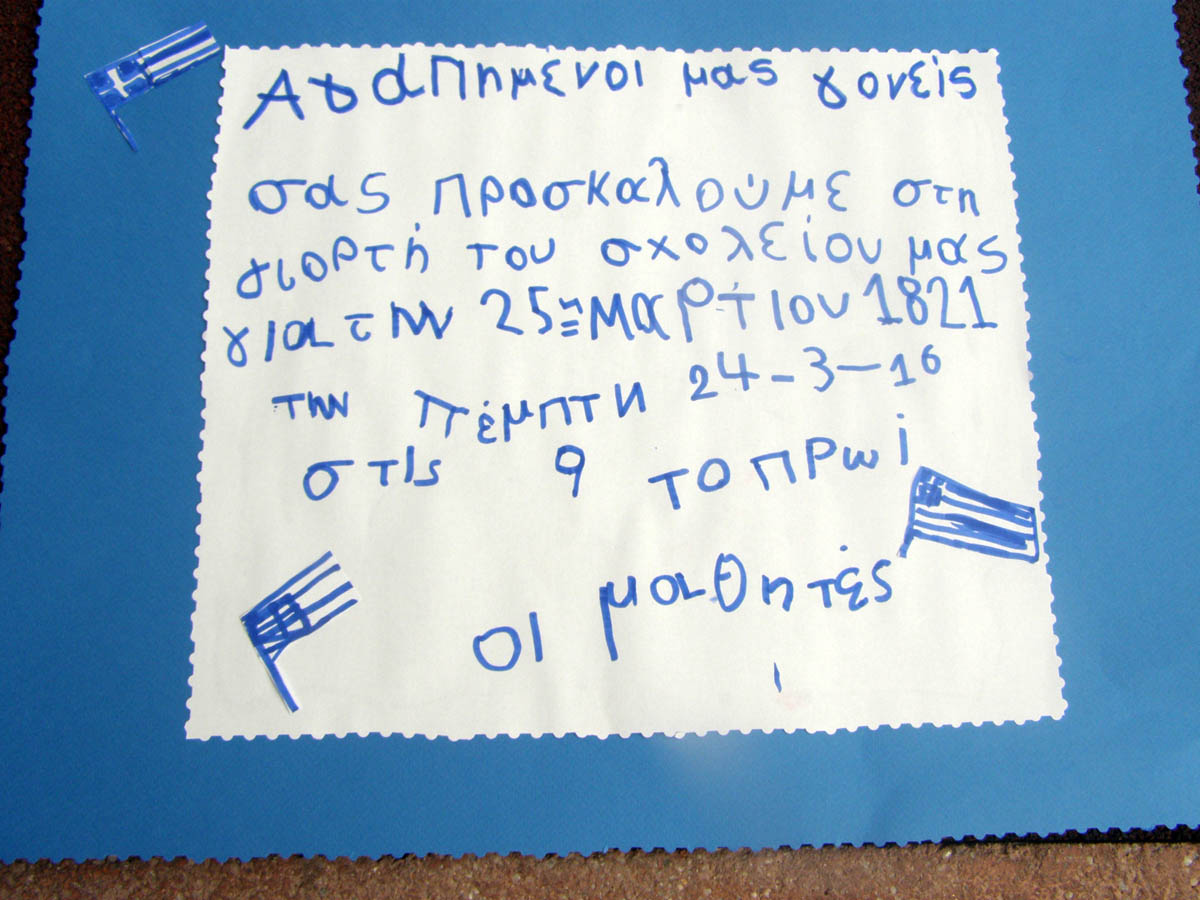 Αγαπημενοι μας γονείς
σας προσκαλούμε στη
γιορτή του σχολείου μας
για την 25η Μαρτίου 1821
την Πέμπτη 24-3-16
στις 9 το πρωί
οι μαθητές